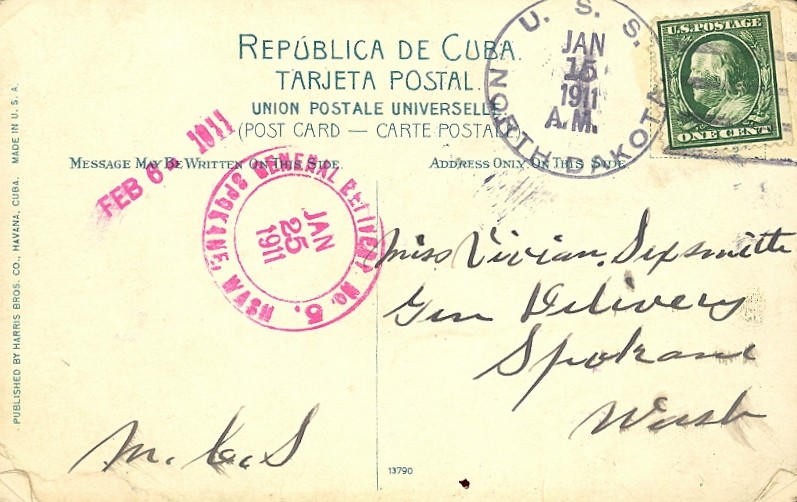 REPÚBLICA DE CUBA.
TARJETA POSTAL.
UNION POSTALE UNIVERSELLE
(POST CARD — CARTE POSTALE)
MESSAGE MAY BE WRITTEN ON THIS SIDE.
ADDRESS ONLY ON THIS SIDE.
U. S. S. NORTH DAKOTA
JAN
15
1911
A.M.
U.S. POSTAGE
ONE CENT
FEB 6 1911
GENERAL DELIVERY No. 5.
SPOKANE, WASH
JAN
25
1911
Miss Vivian Sexsmith
Gen Delivery
Spokane
Wash
M. C. S
13790
PUBLISHED BY HARRIS BROS. CO., HAVANA, CUBA. MADE IN U. S. A.